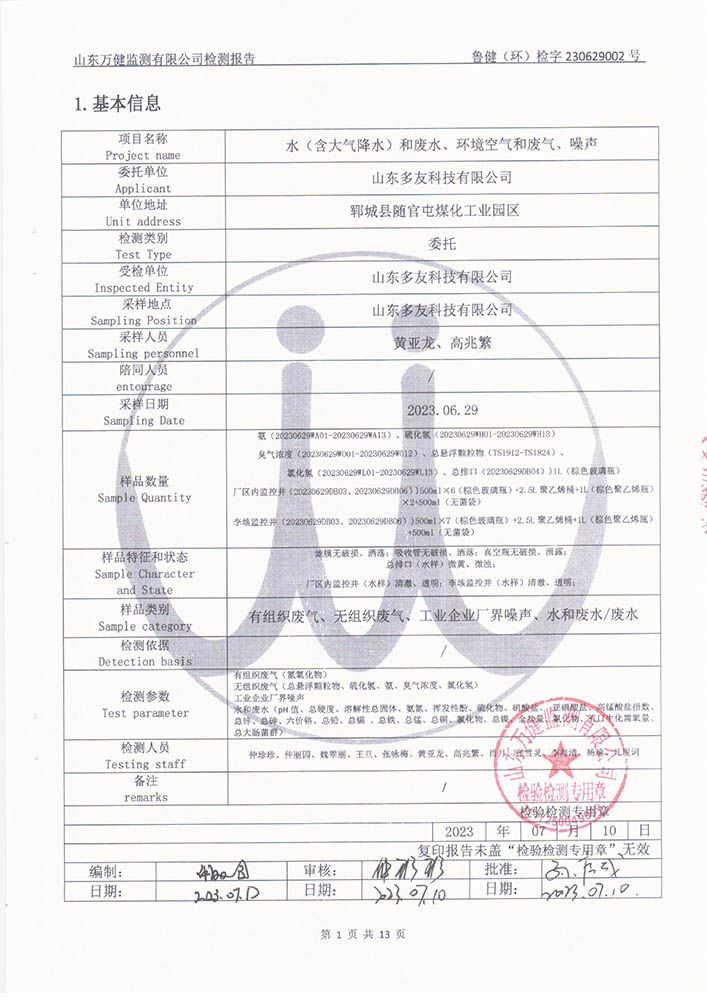 山东万健监测有限公司检测报告 鲁健（环）检字 230629002 号
1.基本信息
项目名称
Project name
水（含大气降水）和废水、环境空气和废气、噪声
委托单位
Applicant
山东多友科技有限公司
单位地址
Unit address
郓城县随官屯煤化工业园区
检测类别
Test Type
委托
受检单位
Inspected Entity
山东多友科技有限公司
采样地点
Sampling Position
山东多友科技有限公司
采样人员
Sampling personnel
黄亚龙、高兆繁
陪同人员
entourage
/
采样日期
Sampling Date
2023.06.29
样品数量
Sample Quantity
氨（20230629WA01-20230629WA13）、硫化氢（20230629WH01-20230629WH13）
臭气浓度（20230629WO01-20230629WO12）、总悬浮颗粒物（TS1912-TS1824）、
氯化氢（20230629WL01-20230629WL13）、总排口（20230629DB04））1L（棕色玻璃瓶）
厂区内监控井（20230629DB03、20230629DB06））500ml×6（棕色玻璃瓶）+2.5L 聚乙烯桶+1L（棕色聚乙烯瓶）
×2+500ml（无菌袋）
李垓监控井（20230629DB03、20230629DB06））500ml×7（棕色玻璃瓶）+2.5L 聚乙烯桶+1L（棕色聚乙烯瓶）
+500ml（无菌袋）
样品特征和状态
Sample Character
and State
滤膜无破损、洒落；吸收管无破损、洒落；真空瓶无破损、泄露；
总排口（水样）微黄、微浊；
厂区内监控井（水样）清澈、透明；李垓监控井（水样）清澈、透明；
样品类别
Sample category
有组织废气、无组织废气、工业企业厂界噪声、水和废水/废水
检测依据
Detection basis
/
检测参数
Test parameter
有组织废气（氮氧化物）
无组织废气（总悬浮颗粒物、硫化氢、氨、臭气浓度、氯化氢）
工业企业厂界噪声
水和废水（pH 值、总硬度、溶解性总固体、氨氮、挥发性酚、硫化物、硝酸盐、亚硝酸盐、高锰酸盐指数、
总锌、总砷、六价铬、总铅、总镉、总铁、总锰、总铜、氯化物、总镍、全盐量、氰化物、五日生化需氧量、
总大肠菌群）
检测人员
Testing staff
仲珍珍、仲丽园、魏翠丽、王旦、张咏梅、黄亚龙、高兆繁、
备注
remarks
/
山东万健监测有限公司
检验检测专用章
检验检测专用章
2023 年 07 月 10 日
复印报告未盖“检验检测专用章”无效
编制： 审核： 批准：
日期： 日期： 2023.07.10 日期： 2023.07.10
第 1 页 共 13 页